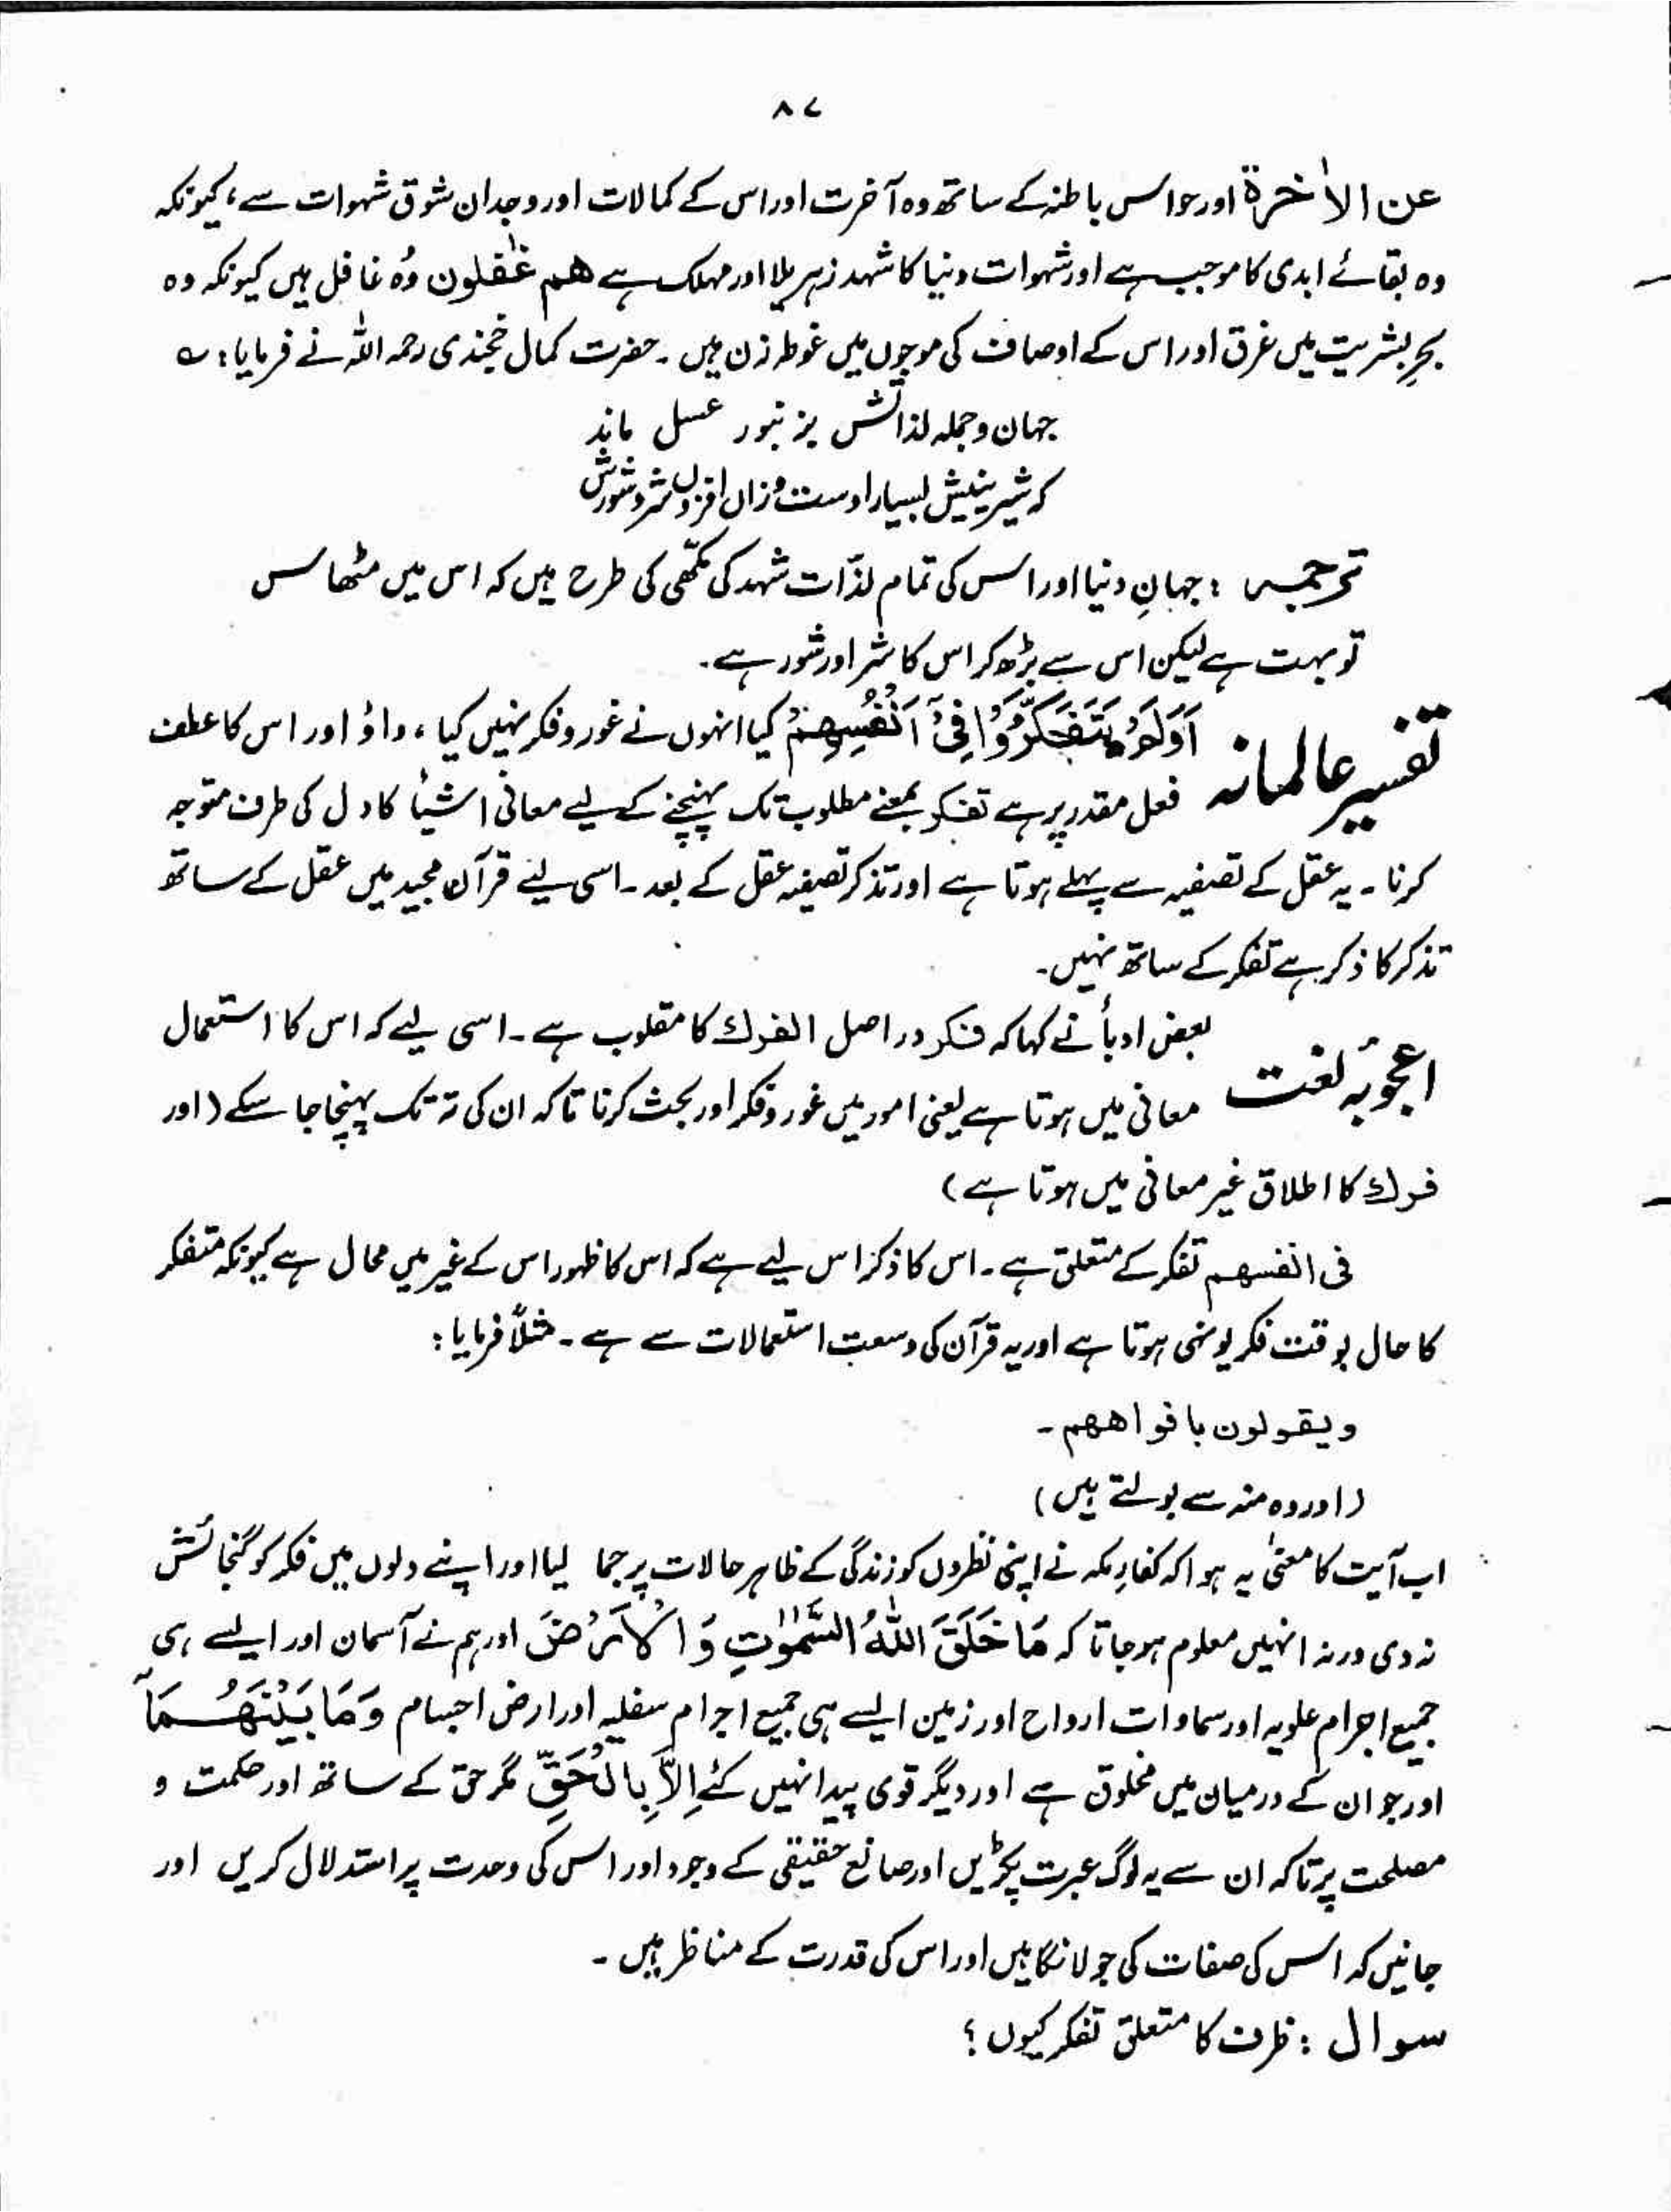 ۸۷
عن الاٰخرة اور حواس باطنہ کے ساتھ وہ آخرت اور اس کے کمالات اور وجدان شوق شہوات سے، کیونکہ
وہ بقائے ابدی کا موجب ہے اور شہوات دنیا کا شہد زہریلا اور مہلک ہے ھم غٰفلون وُہ غافل ہیں کیونکہ وہ
بحرِ بشریت میں غرق اور اس کے اوصاف کی موجوں میں غوطہ زن ہیں ۔ حضرت کمال خجندی رحمہ اللہ نے فرمایا : ؎
جہان و جملہ لذاتش بزنبور عسل ماند
کہ شیرینیش بسیار اوست وزاں افزوں شر و شورش
ترجمہ : جہانِ دنیا اور اس کی تمام لذّات شہد کی مکّھی کی طرح ہیں کہ اس میں مٹھاس
تو بہت ہے لیکن اس سے بڑھ کر اس کا شر اور شور ہے ۔
تفسیر عالمانہ اَوَلَمْ يَتَفَكَّرُوْا فِىْٓ اَنْفُسِهِمْ کیا انہوں نے غور و فکر نہیں کیا ، واؤ اور اس کا عطف
فعل مقدر پر ہے تفکر بمعنے مطلوب تک پہنچنے کے لیے معانی اشیأ کا دل کی طرف متوجہ
کرنا ۔ یہ عقل کے تصفیہ سے پہلے ہوتا ہے اور تذکر تصفیہ عقل کے بعد ۔ اسی لیے قرآن مجید میں عقل کے ساتھ
تذکر کا ذکر ہے تفکر کے ساتھ نہیں ۔
اعجوبۂ لغت بعض ادبأ نے کہا کہ فکر در اصل الفرك کا مقلوب ہے ۔ اسی لیے کہ اس کا استعمال
معانی میں ہوتا ہے یعنی امور میں غور و فکر اور بحث کرنا تاکہ ان کی تہ تک پہنچا جا سکے ( اور
فرك کا اطلاق غیر معانی میں ہوتا ہے )
فی انفسھم تفکر کے متعلق ہے ۔ اس کا ذکر اس لیے ہے کہ اس کا ظہور اس کے غیر میں محال ہے کیونکہ متفکر
کا حال بوقت فکر یونہی ہوتا ہے اور یہ قرآن کی وسعتِ استعمالات سے ہے ۔ مثلاً فرمایا :
ویقولون بافواھھم ۔
( اور وہ منہ سے بولتے ہیں )
اب آیت کا معنیٰ یہ ہوا کہ کفارِ مکہ نے اپنی نظروں کو زندگی کے ظاہر حالات پر جما لیا اور اپنے دلوں میں فکر کو گنجائش
نہ دی ورنہ انہیں معلوم ہو جاتا کہ مَا خَلَقَ اللّٰهُ السَّمٰوٰتِ وَالْاَرْضَ اور ہم نے آسمان اور ایسے ہی
جمیع اجرام علویہ اور سماوات ارواح اور زمین ایسے ہی جمیع اجرام سفلیہ اور ارض اجسام وَمَا بَيْنَهُمَآ
اور جو ان کے درمیان میں مخلوق ہے اور دیگر قوی پیدا نہیں کئے اِلَّا بِالْحَقِّ مگر حق کے ساتھ اور حکمت و
مصلحت پر تاکہ ان سے یہ لوگ عبرت پکڑیں اور صانع حقیقی کے وجود اور اس کی وحدت پر استدلال کریں اور
جانیں کہ اس کی صفات کی جولانگاہیں اور اس کی قدرت کے مناظر ہیں ۔
سوال : ظرف کا متعلق تفکر کیوں ؟